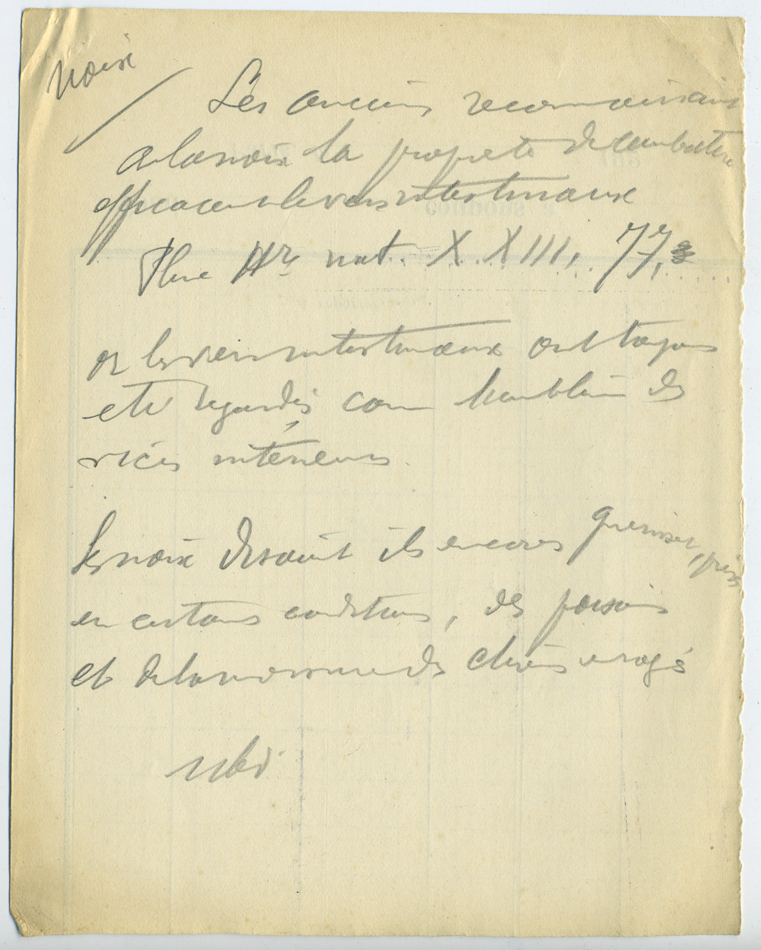 Noix
Les anciens reconnaissaient
à la noix la propriété de combattre
efficacement les vers intestinaux
Pline Hr nat. X.XIII, 77,
or les vers intestinaux ont toujours
été regardés com des
vices intérieurs.
Les noix disaient ils encores guerissent, prises
en certains conditions, des poisons
et de la morsure des chiens enragés
ubi